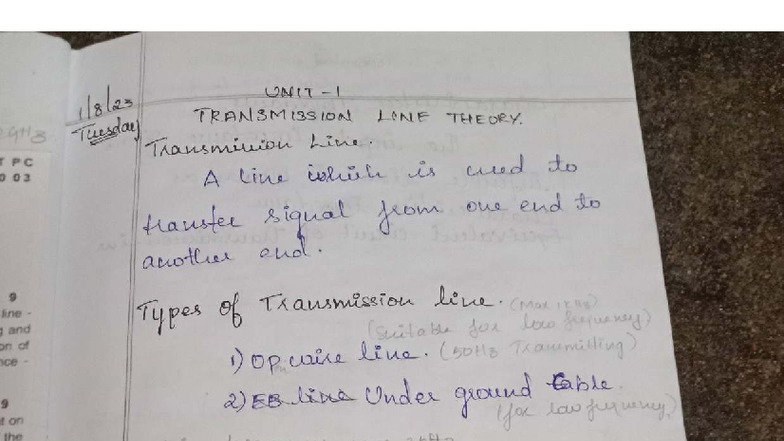 UNIT-1
1/8/23
Tuesday
TRANSMISSION LINE THEORY.
Transmission Line.
A line which is used to
transfer signal from one end to
another end.
Types of Transmission line. (Max 1KHz)
(Suitable for low frequency)
1) Open wire line. (50Hz Transmitting)
2) EB line Under ground Cable.
(for low frequency)
T PC
0 03
9
line -
g and
on of
nce -
9
t on
the